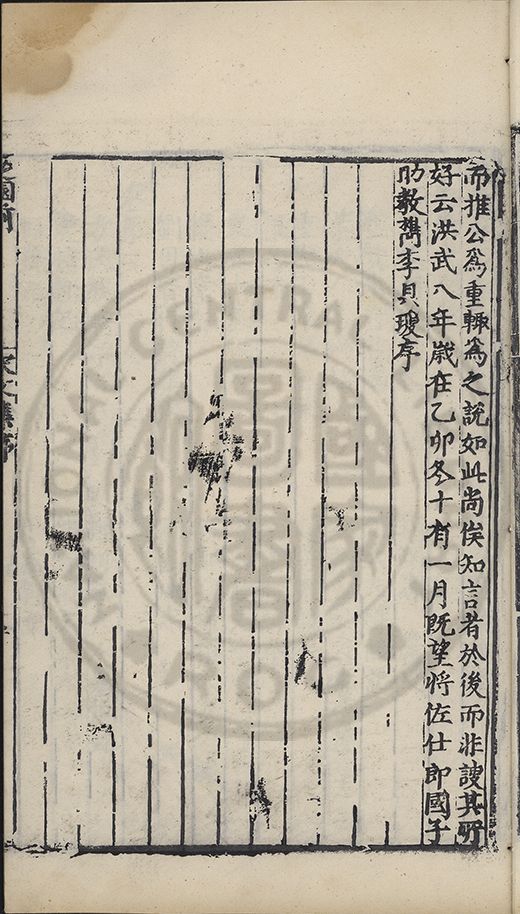 而推公爲重輙爲之說如此尚俟知言者於後而非諛其所
好云洪武八年歲在乙卯冬十有一月既望將佐仕郎國子
助教檇李貝瓊序
CENTRAL